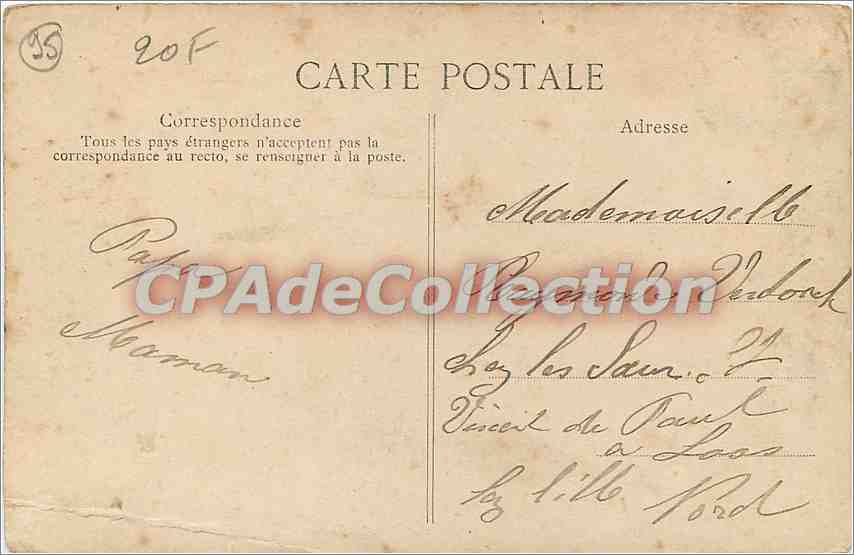 95
20F
CARTE POSTALE
Correspondance
Tous les pays étrangers n'acceptent pas la
correspondance au recto, se renseigner à la poste.
Papa
Maman
Adresse
Mademoiselle
Raymonde
chez les Sœur
Vincent de Paul
a Loos
Lez Lille Nord
CPAdeCollection